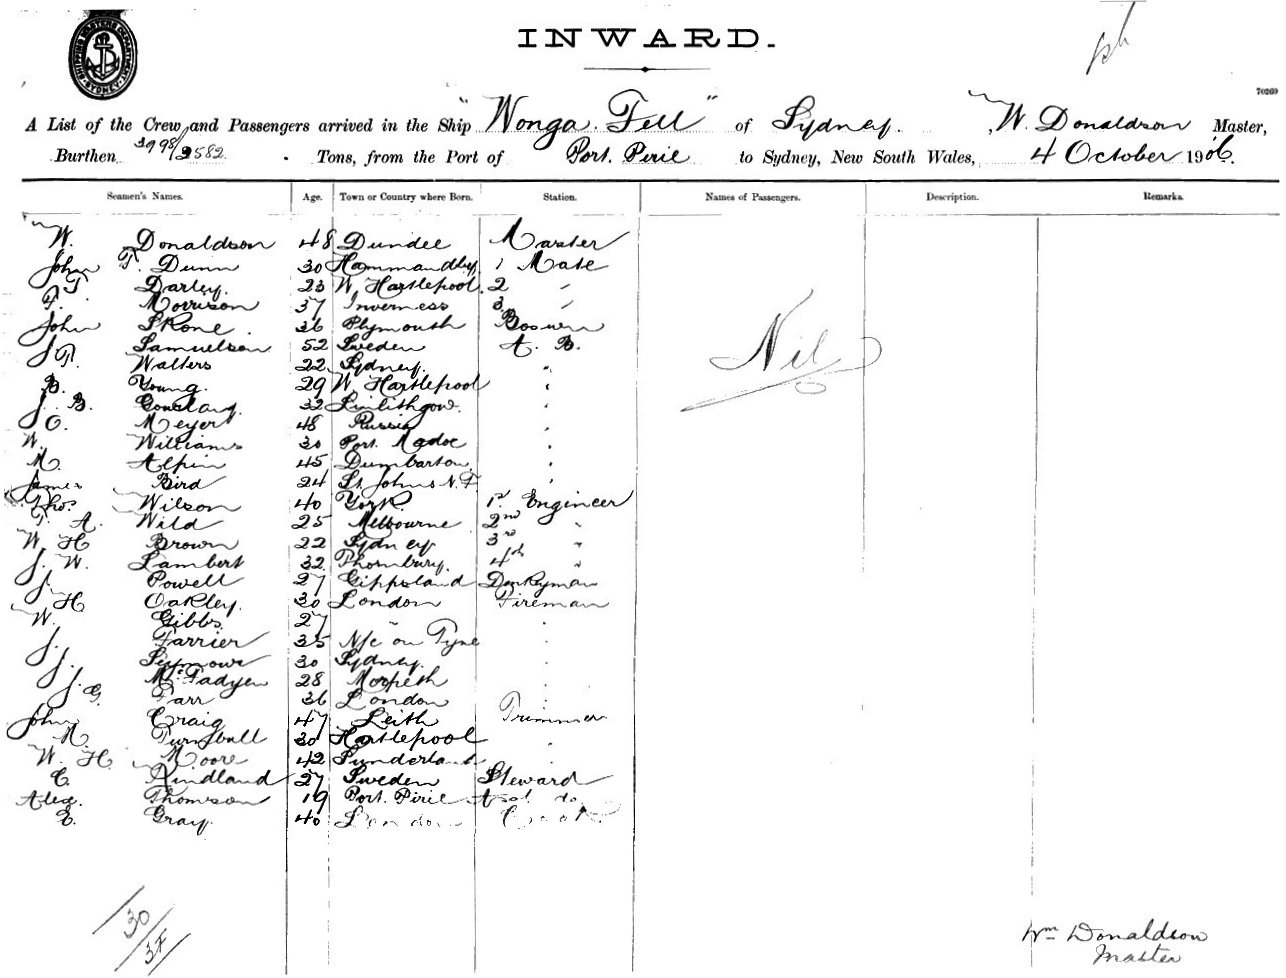 SHIPPING MASTERS DEPARTMENT SYDNEY
INWARD.
70269
A List of the Crew and Passengers arrived in the Ship "Wonga Fell" of Sydney. W. Donaldson Master,
Burthen 3998/2582 Tons, from the Port of Port. Pirie to Sydney, New South Wales, 4 October 1906.
Seamen's Names. Age. Town or Country where Born. Station. Names of Passengers. Description. Remarks.
W. Donaldson 48 Dundee Master
John T. Dunn 30 1 Mate
T Darley. 23 W. Hartlepool. 2 "
F. Morrison 37 Inverness 3 "
John Skone. 36 Plymouth Boswin
J. Samuelson 52 Sweden A. B.
F. Walters 22 Sydney. "
B. Young. 29 W. Hartlepool "
J. B. 32 Linlithgow. "
J O. Meyer 48 Russia "
W. Williams 30 Port. Madoc "
M. Alpin 45 Dumbarton "
James Bird 24 St. Johns N. F "
Thos. Wilson 40 York. 1st Engineer
F. A. Wild 25 Melbourne 2nd "
W H Brown 22 Sydney 3rd "
J. W. Lambert 32 Thornbury. 4th "
J. Powell 27 Gippsland Donkeyman
H Oakley. 30 London Fireman
W. Gibbs 27 " "
J. Farrier 35 N/c on Tyne "
J. Seymour 30 Sydney. "
J. McFadyen 28 Morpeth "
G. Farr 36 London "
John Craig 47 Leith Trimmer
M. Turnbull 30 Hartlepool "
W. H. Moore 42 Sunderland "
C. Rindland 27 Sweden Steward
Alex. Thomson 19 Port. Pirie Asst. do
E. Gray. 40 London Cook
Nil
30
Wm Donaldson
Master